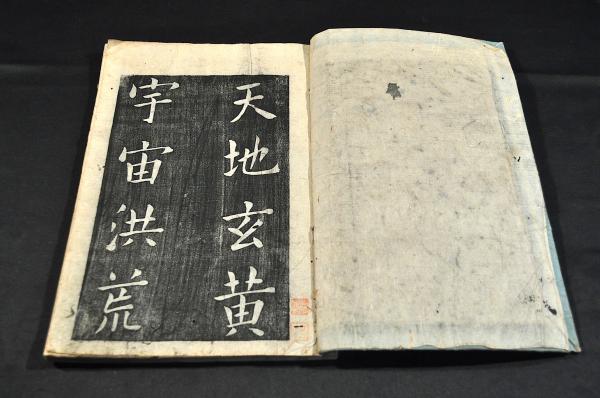 天地玄黄
宇宙洪荒
一